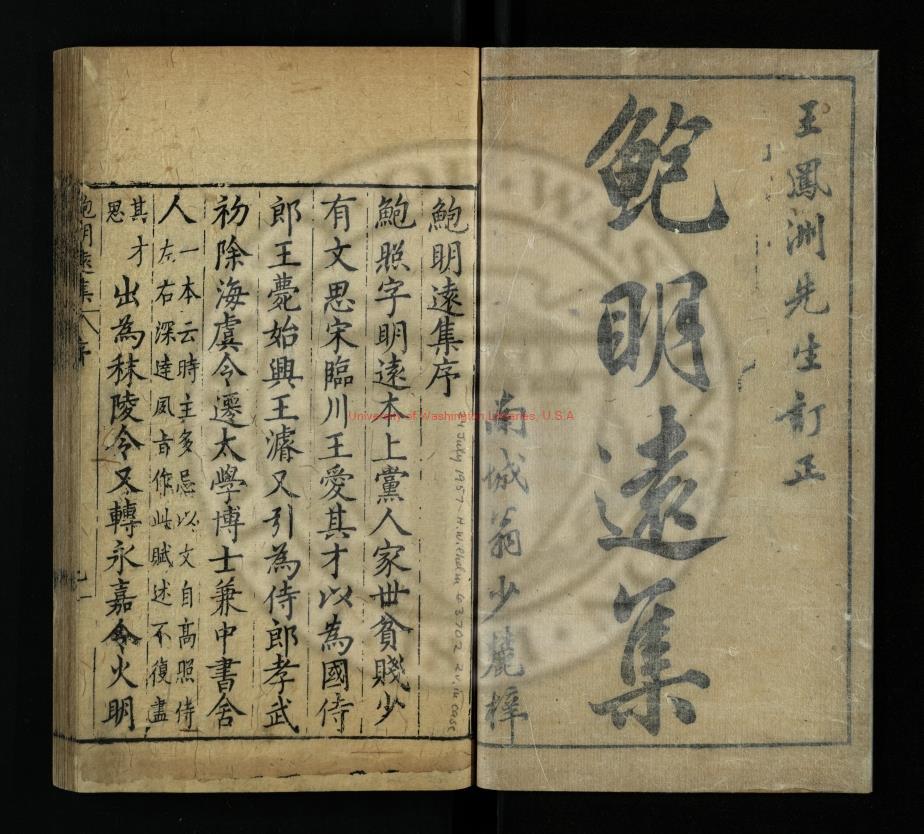 王鳳洲先生訂正
鮑明遠集
南城翁少麓梓
鮑明遠集序
鮑照字明遠本上黨人家世貧賤少
有文思宋臨川王愛其才以為國侍
郎王薨始興王濬又引為侍郎孝武
初除海虞令遷太學博士兼中書舍
人一本云時主多忌以文自高照侍
左右深達風旨作此賦述不復盡
其才
思出為秣陵令又轉永嘉令大明
鮑明遠集 序
July 1957 - H. Wilhelm 43702 2 v. in case
University of Washington Libraries, U.S.A